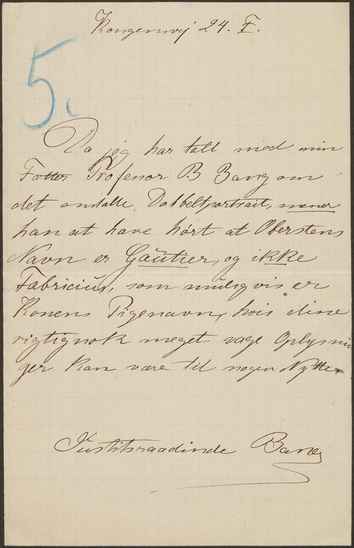 Kongevej 24. I.
5.
Da jeg har talt med min
Fætter Professor B Bang om
det omtalte Dobbeltportrait, mener
han at have hört at Oberstens
Navn er Gautier, og ikke
Fabricius, som muligvis er
Konens Pigenavn, hvis disse
rigtignok meget vage Oplysnin
ger kan være til nogen Nytte.
Justitsraadinde Bang